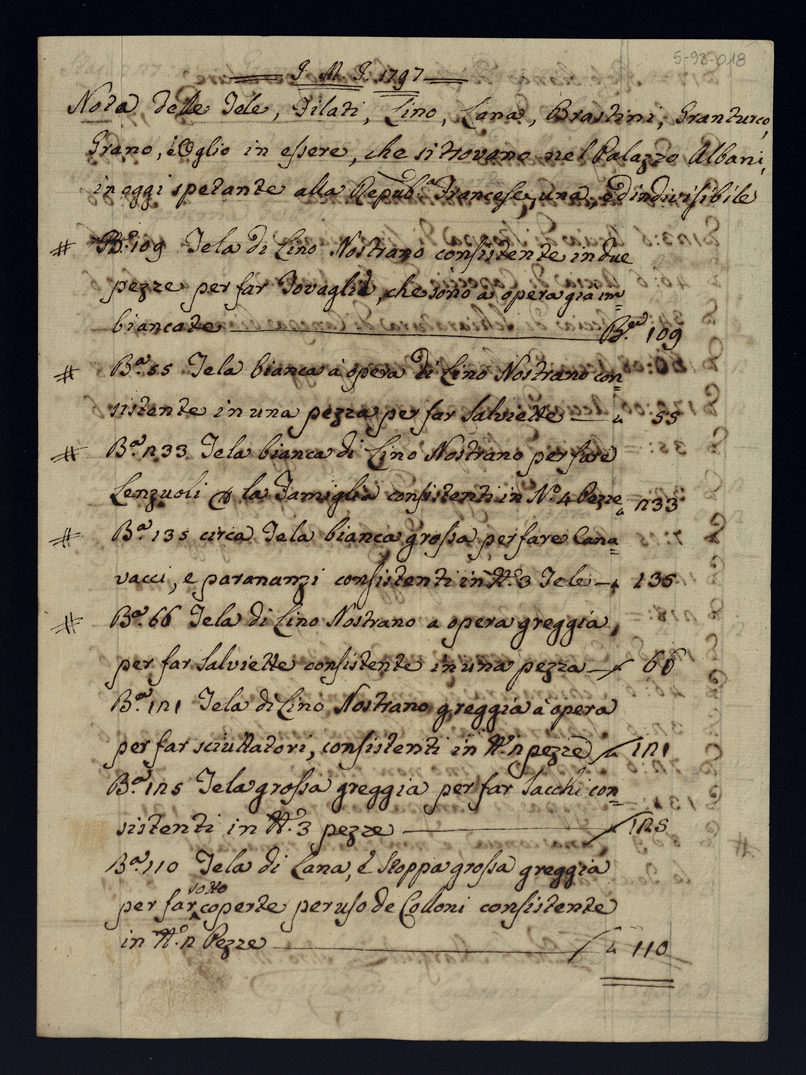 5-93-018
J. M. J. 1797
Nota delle Tele, Filati, Lino, Lana, Brastini, Granturco,
Grano, è Oglio in essere, che si trovano nel Palazzo Albani,
in oggi spetante alla Repub.ca Francese, una, ed indivisibile
# B.a 109 Tela di Lino Nostrano consistente in due
pezze per far Tovaglie, che sono a opera gia im=
biancate B.a 109
# B.a 55 Tela bianca a opera di Lino Nostrano con=
sistente in una pezza per far Salviette — " 55
# B.a 233 Tela bianca di Lino Nostrano per fare
Lenzuoli p la Famiglia consistenti in N.o 4 Pezze " 233
# B.a 135 circa Tela bianca grossa per fare Cana=
vacci, e parananzi consistenti in N.o 3 Tele — " 135
# B.a 66 Tela di Lino Nostrano a opera greggia,
per far Salviette consistente in una pezza — " 66
B.a 121 Tela di Lino Nostrano greggia a opera
per far sciuttatori, consistenti in N.o 2 pezze " 121
B.a 125 Tela grossa greggia per far Sacchi con=
sistenti in N.o 3 pezze — " 125
B.a 110 Tela di Lana, è Stoppa grossa greggia
per far sotto coperte per uso de Colloni consistente
in N.o 2 Pezze — " 110